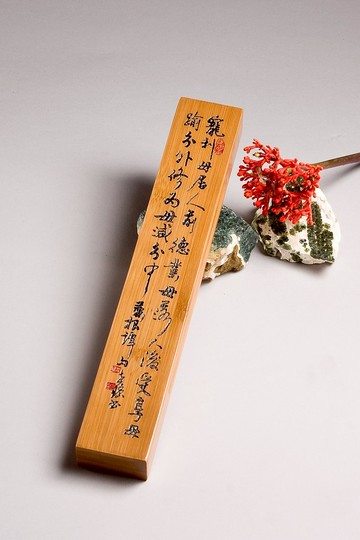 寵利毋居人前德業毋落人後受享毋
踰分外修为毋減分中
菜根譚